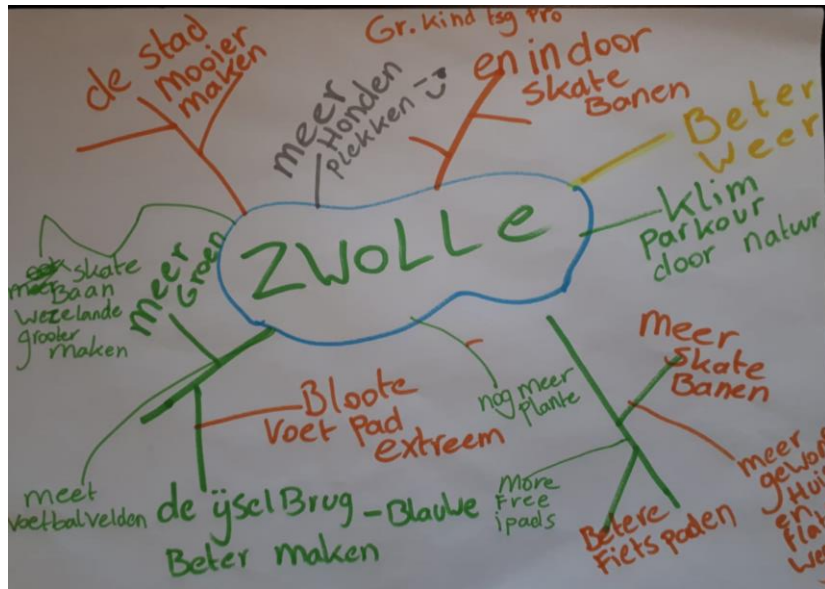 de stad
mooier
maken
meer
Honden
plekken
Gr. kind tsg pro
en in door
skate
Banen
Beter
weer
klim
parkour
door natuur
ZWOLLe
meer
Groen
skate
meer Baan
wezelande
grooter
maken
Bloote
voet pad
extreem
nog meer
plante
meer
skate
Banen
meer
Huis
en
flat
meet
voetbalvelden
de ijsel Brug - Blauwe
Beter maken
More
Free
ipads
Betere
Fiets paden